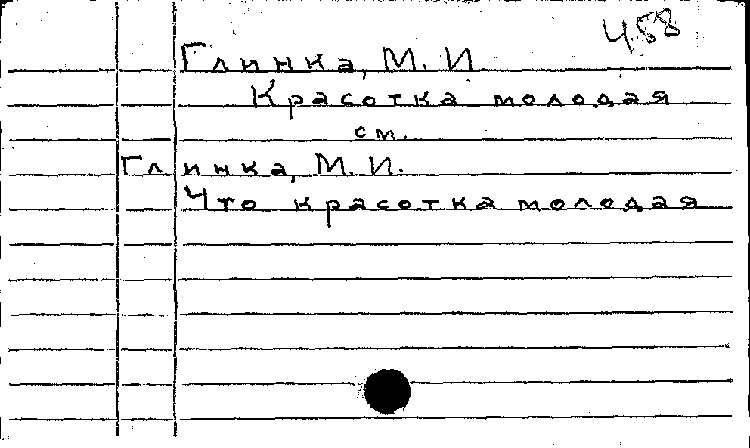 458
Глинка, М. И
Красотка молодая
см.
Глинка, М. И.
Что красотка молодая